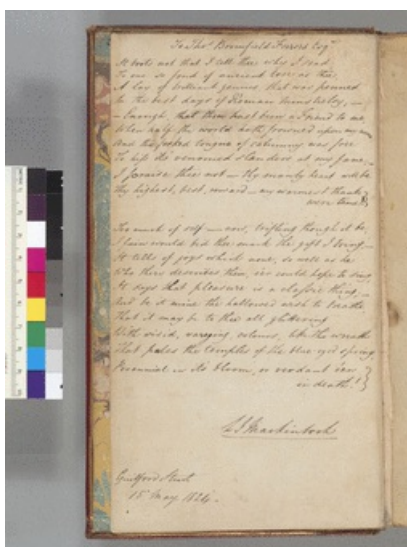 To Thos. Broomfield Esqr.
It boots not that I tell thee why I send
To one so fond of ancient lore as thee
A lay of brilliant genius that was penned
In the best days of Roman minstrelsy, —
— Enough, that thou hast been a Friend to me
When half the world hath frowned upon my
And the forked tongue of calumny was free
To hiss its venomed slanders at my fame, —
I praise thee not — thy manly heart will be
thy highest, best, reward — my warmest thanks
were time!
Too much of self — now, trifling though it be,
I fain would bid thee mark the gift I bring, —
It tells of joys which none, so well as he
Who there describes them, ere could hope to sing,
Of days that pleasure is a classic thing, —
And be it mine the hallowed wish to breathe
That it may be to thee all glittering
With vivid, varying, colours, like the wreath
That binds the temples of the blue-eyed spring
Perennial in its bloom, or verdant even
in death!
Mackintosh
Guilford Street
15 May 1824.